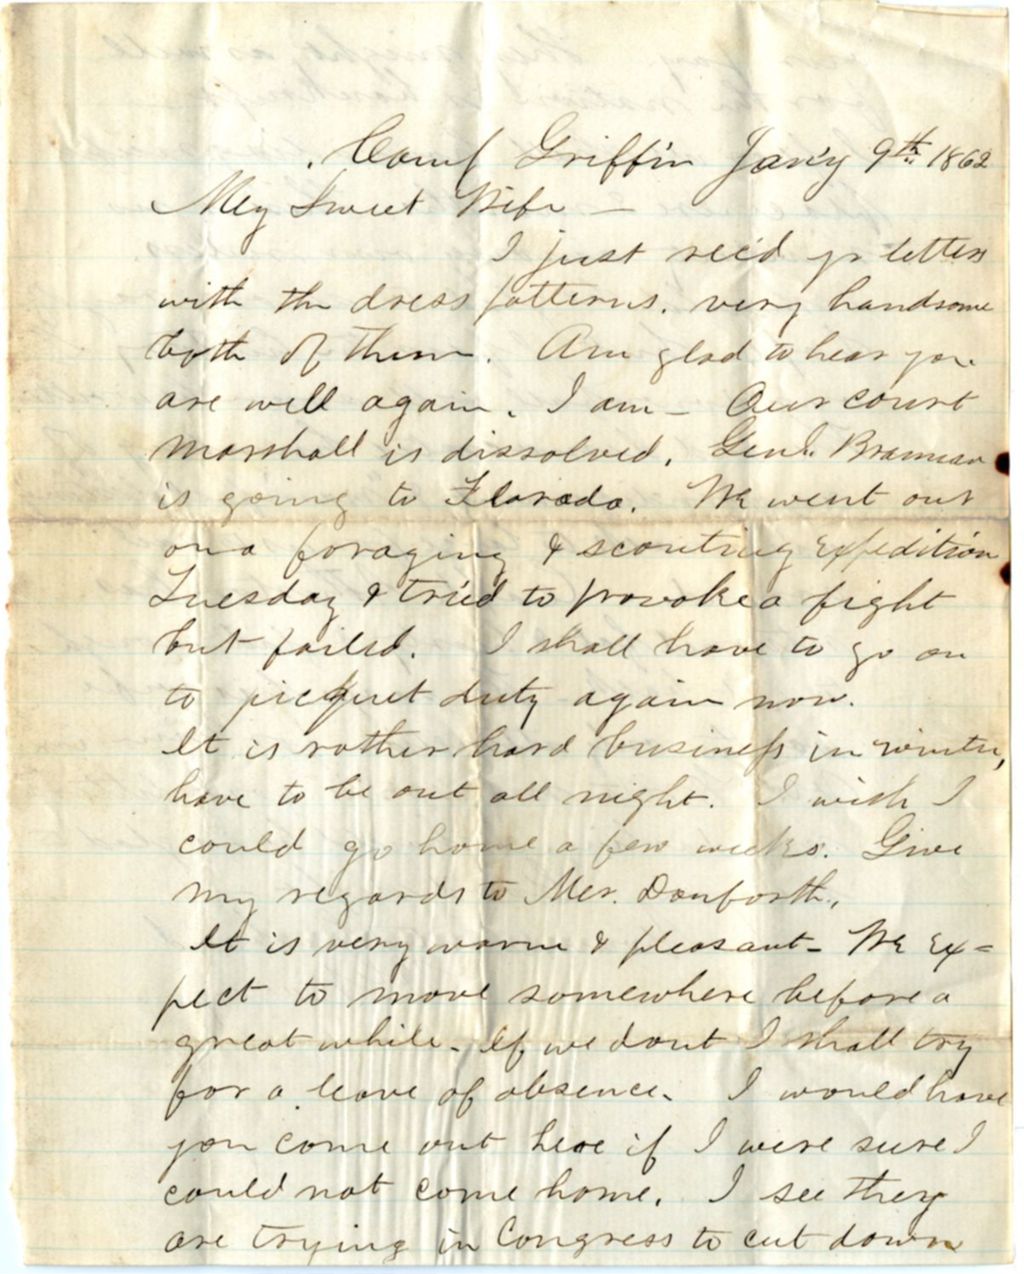 Camp Griffin Jan'y 9th 1862
My Sweet Wife —
I just rec'd yr letters
with the dress patterns. very handsome
both of them. Am glad to hear you
are well again. I am — Our court
marshall is dissolved. Genl. Brannan
is going to Florada. We went out
on a foraging & scouting expedition
Tuesday & tried to provoke a fight
but failed. I shall have to go on
to picquet duty again now.
It is rather hard business in winter,
have to be out all night. I wish I
could go home a few weeks. Give
my regards to Mer. Danforth.,
It is very warm & pleasant — We ex=
pect to move somewhere before a
great while — If we dont I shall try
for a leave of absence. I would have
you come out here if I were sure I
could not come home. I see they
are trying in Congress to cut down